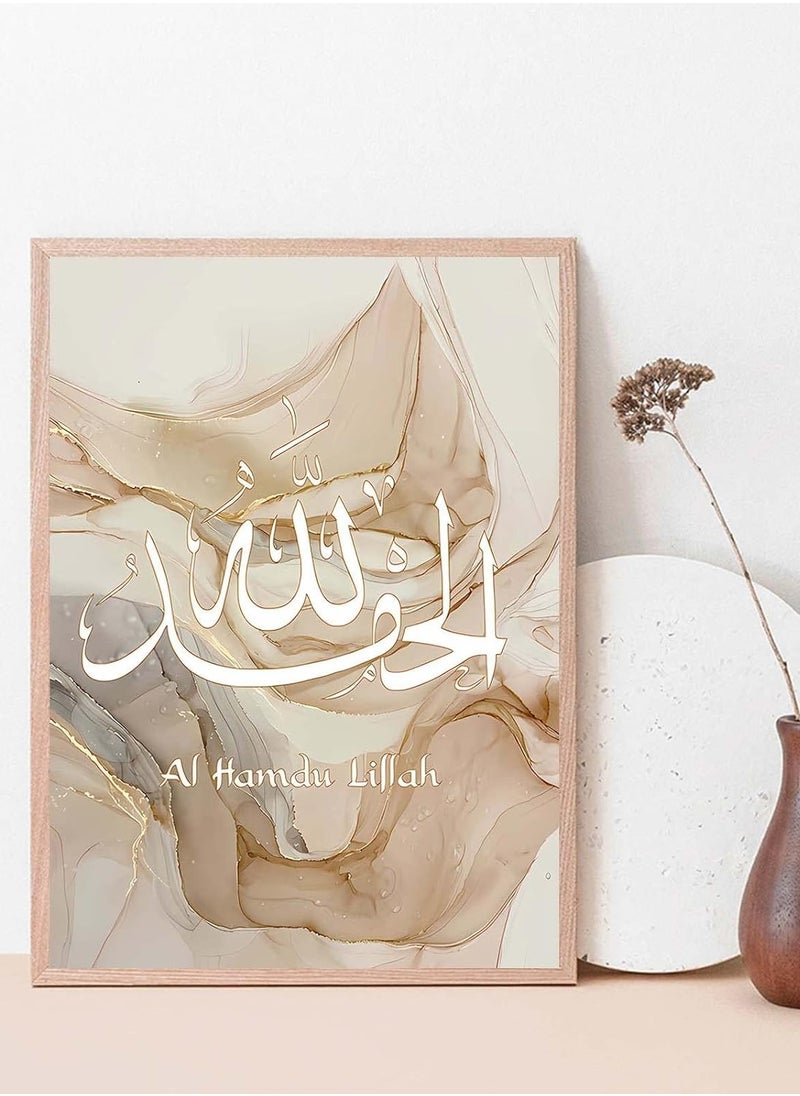 الحمد لله
Al Hamdu Lillah